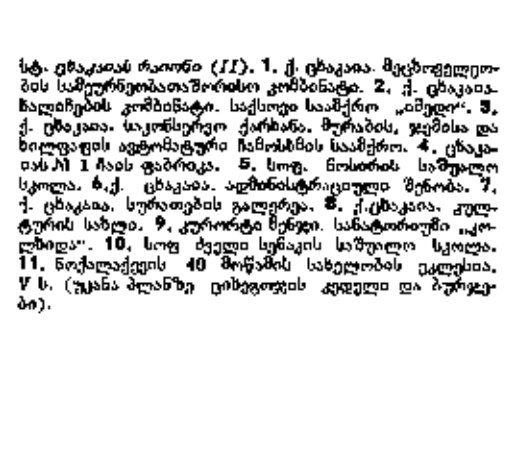 სტ. ცხაკაიას რაიონი (II). 1. ქ. ცხაკაია. მეცხოველეო-
ბის სამეურნეობათაშორისო კომბინატი. 2. ქ. ცხაკაია.
ხალიჩების კომბინატი. საქსოვი საამქრო „იმედი“. 3.
ქ. ცხაკაია. საკონსერვო ქარხანა. მურაბის, ჯემისა და
ხილფაფის ავტომატური ჩამოსხმის საამქრო. 4. ცხაკა-
იას № 1 ჩაის ფაბრიკა. 5. სოფ. ნოსირის საშუალო
სკოლა. 6.ქ. ცხაკაია. ადმინისტრაციული შენობა. 7.
ქ. ცხაკაია. სურათების გალერეა. 8. ქ.ცხაკაია. კულ-
ტურის სახლი. 9. კურორტი მენჯი. სანატორიუმი „კო-
ლხიდა“. 10. სოფ ძველი სენაკის საშუალო სკოლა.
11. ნოქალაქევის 40 მოწამის სახელობის ეკლესია.
V ს. (უკანა პლანზე ციხეგოჯის კედელი და ბურჯე-
ბი).